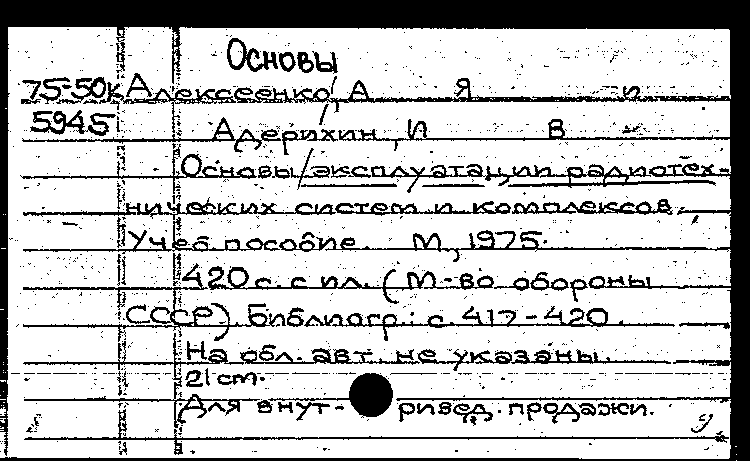 Основы
75-50к Алексеенко, А Я и
5945 Адерихин, И В
Основы/эксплуатации радиотех-
нических систем и комплексов.
Учеб пособие. М., 1975.
420 с. с ил. (М-во обороны
СССР). Библиогр.: с. 417-420.
На обл. авт. не указаны.
21 cm.
Для внут- ривед. продажи.